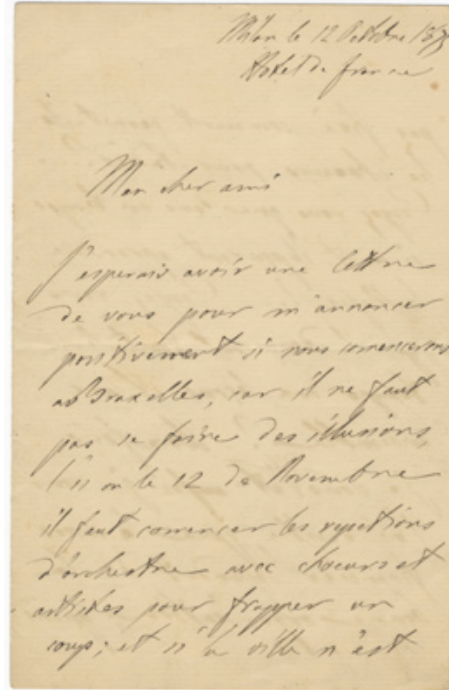 Milan le 12 Octobre 187
Hotel de france
Mon cher ami
J'esperais avoir une lettre
de vous pour m'annoncer
positivement si nous comencerons
a Bruxelles, car il ne faut
pas se faire des illusions,
l'11 ou le 12 de Novembre
il faut comencer les repetitions
d'orchestre avec choeurs et
artistes pour frapper un
coup; et si la ville n'est